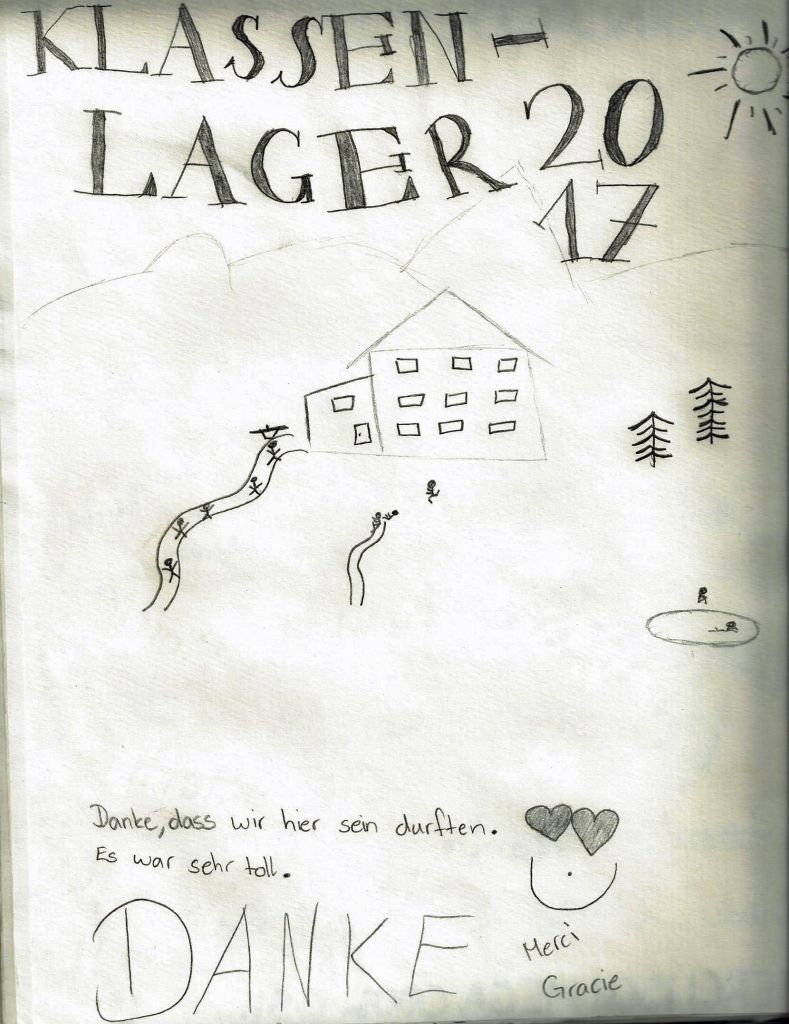 KLASSEN-
LAGER 20
17
Danke, dass wir hier sein durften.
Es war sehr toll.
DANKE
Merci
Gracie